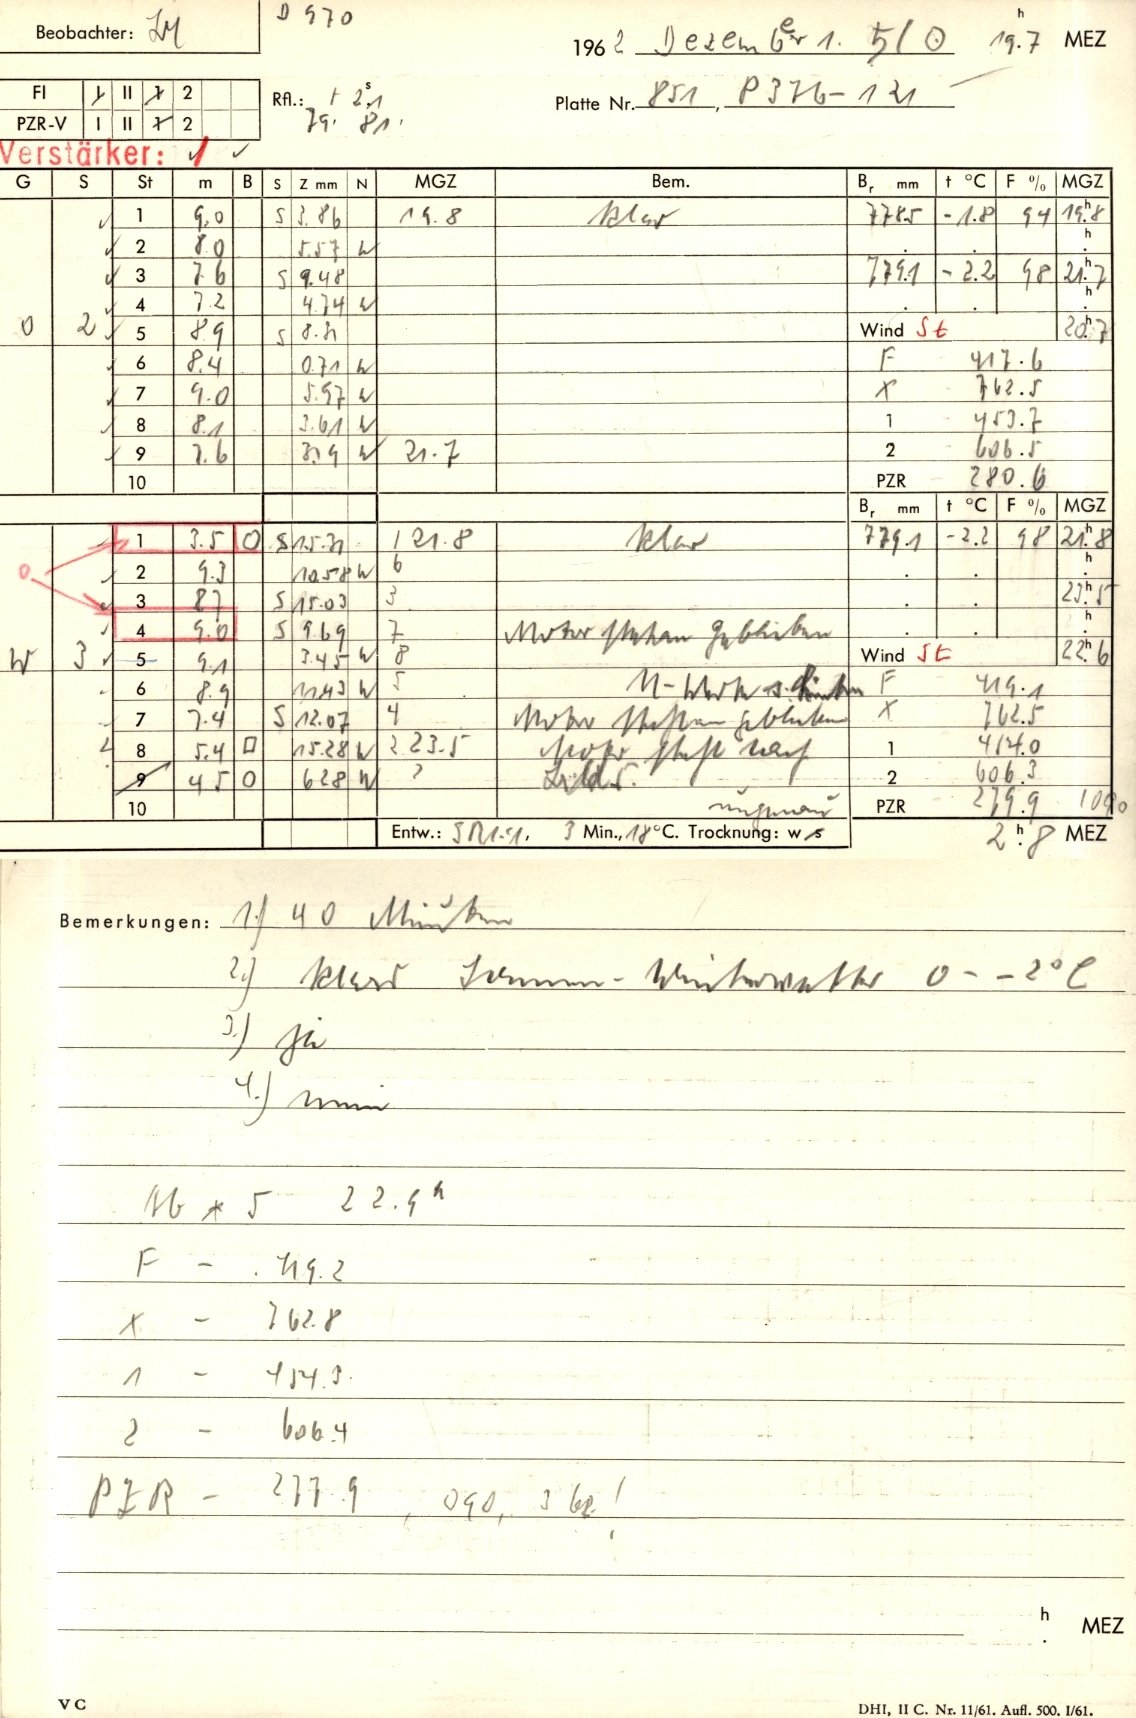 Beobachter:
D 970
196 2 Dezember 1. 5/0 19.h7 MEZ
FI I II 1 2
PZR-V I II 1 2
Rfl.: + 2.s1
79. 81.
Platte Nr. 851, P376-121
Verstärker:
G S St m B S Z mm N MGZ Bem. Br mm t °C F % MGZ
1 9.0 S 3.86 19.8 klar 778.5 -1.8 94 19.h8
2 8.0 5.57 W
3 7.6 S 9.48 779.1 -2.2 98 21.h7
4 7.2 4.74 W
0 2 5 8.9 S Wind St 20.h7
6 8.4 0.71 W F 417.6
7 9.0 5.97 W X 762.5
8 8.1 3.61 W 1 453.7
9 7.6 W 21.7 2 606.5
10 PZR 280.6
Br mm t °C F % MGZ
1 3.5 O S 15.31 1 21.8 klar 779.1 -2.2 98 21.h8
2 9.3 10.58 W 6
0 3 8.7 S 15.03 3 23.h5
4 9.0 S 9.69 7 Motor stehen geblieben
W 3 5 9.1 3.45 W 8 Wind St 22.h6
6 8.9 11.43 W 5 F 419.1
7 7.4 S 12.07 4 Motor stehen geblieben X 762.5
8 5.4 □ 15.28 W 2 23.5 1 454.0
9 4.5 O 6.28 W ? 2 606.3
10 ungenau PZR 279.9
Entw.: 3 Min., 18°C. Trocknung: w s
2.h8 MEZ
Bemerkungen: 1.) 40 Minuten
2.) klares Winterwetter 0 - -2°C
3.) ja
4.) nein
Ab * 5 22.9h
F - 419.2
X - 762.8
1 - 454.3
2 - 606.4
PZR - 277.9, 090,
h MEZ
V C
DHI, II C. Nr. 11/61. Aufl. 500. I/61.